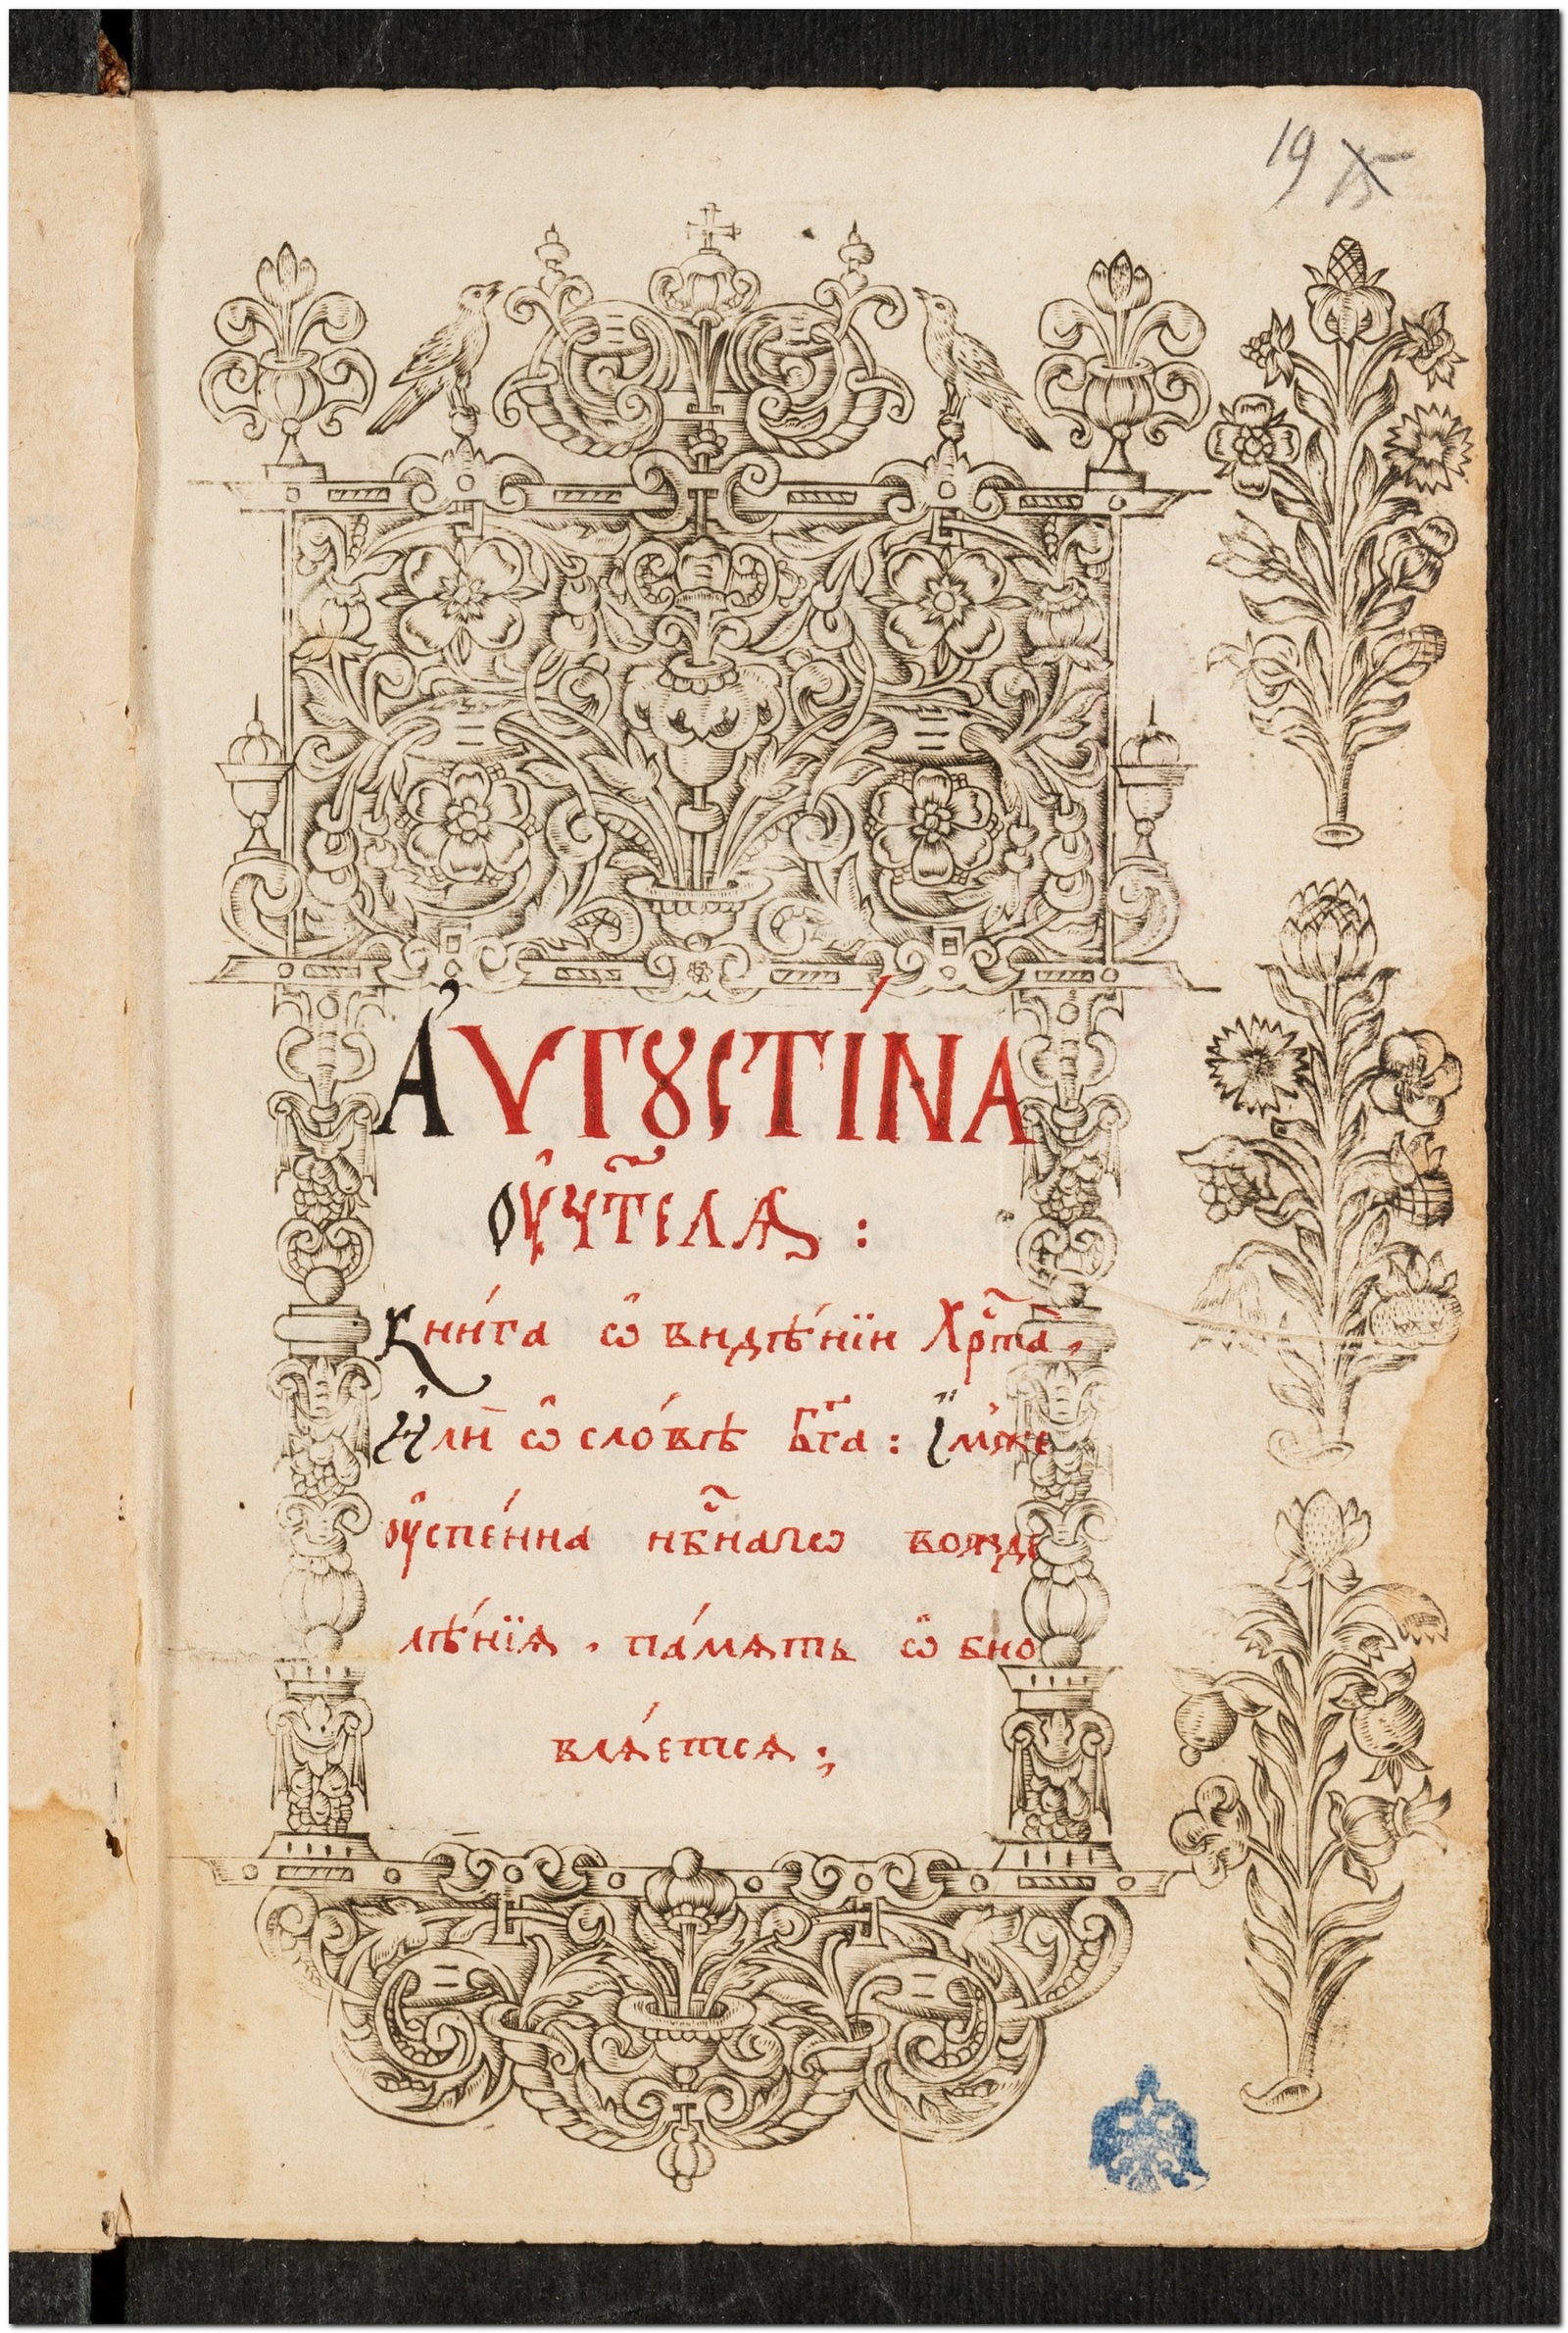 19 15
А҆ѴГꙊСТІ́НА
ᲂу҆чт҃елѧ :
Кни́га ѡ҆ видѣ́нїи Хрⷭ҇та̀,
И҆лѝ ѡ҆ сло́вѣ Бг҃а : І҆́мже
ᲂу҆спе́нна нбⷭ҇нагѡ вожде
лѣ́нїѧ . па́мѧть ѡ҆бно
влѧ́етсѧ ;